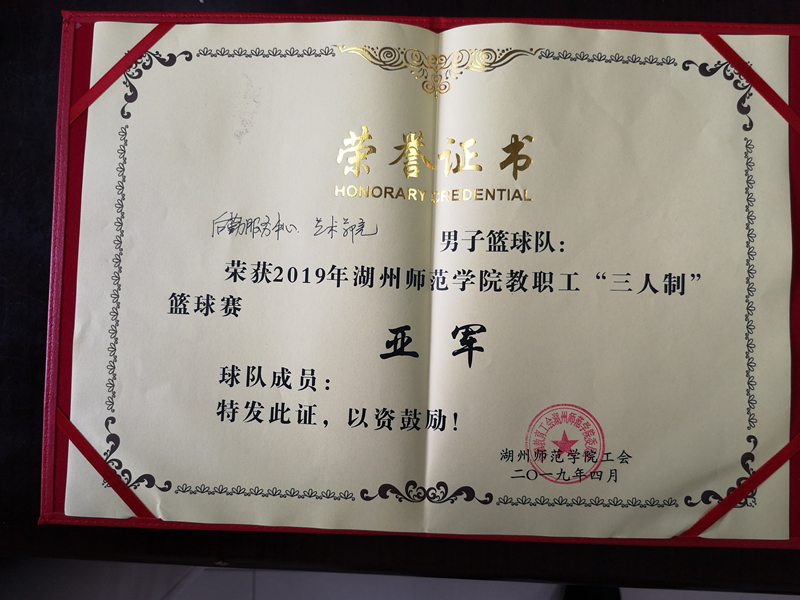 荣誉证书
HONORARY CREDENTIAL
后勤服务中心 艺术 男子篮球队：
荣获2019年湖州师范学院教职工“三人制”
篮球赛
亚军
球队成员：
特发此证，以资鼓励！
湖州师范学院工会
二〇一九年四月